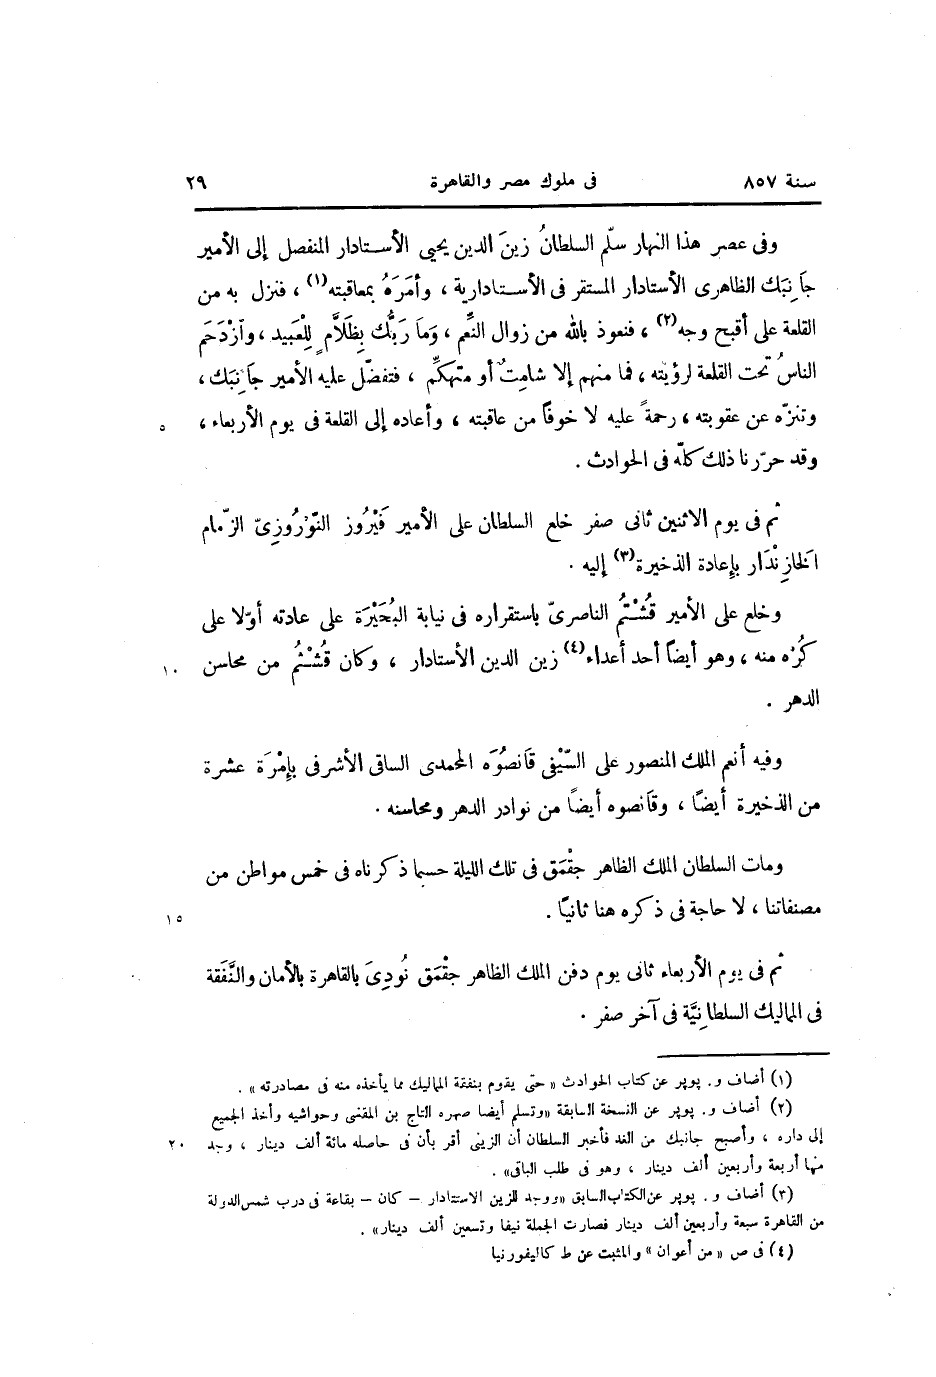 سنة ٨٥٧ فى ملوك مصر والقاهرة ٢٩
وفى عصر هذا النهار سلّم السلطانُ زينَ الدين يحيى الأستادار المنفصل إلى الأمير
جَانِبَك الظاهرى الأستادار المستقر فى الأستادارية ، وأمَرَهُ بمعاقبته(١) ، فنزل به من
القلعة على أقبح وجه(٢) ، فنعوذ بالله من زوال النِّعم ، وَمَا رَبُّك بِظَلاَّمٍ لِلْعَبيد ، وازْدَحَم
الناسُ تحت القلعة لرؤيته ، فما منهم إلا شامِتٌ أو متهكِّم ، فتفضّل عليه الأمير جَانِبَك ،
وتنزّه عن عقوبته ، رحمةً عليه لا خوفًا من عاقبته ، وأعاده إلى القلعة فى يوم الأربعاء ، ٥
وقد حرّرنا ذلك كلّه فى الحوادث .
ثم فى يوم الاثنين ثانى صفر خلع السلطان على الأمير فَيْرُوز النَّوْرُوزِىّ الزّمام
الخَازِنْدَار بإعادة الذخيرة(٣) إليه .
وخلع على الأمير قُشْتُم الناصرىّ باستقراره فى نيابة البُحَيْرَة على عادته أوّلا على
كُرْه منه ، وهو أيضًا أحد أعداء(٤) زين الدين الأستادار ، وكان قُشْتُم من محاسن ١٠
الدهر .
وفيه أنعم الملك المنصور على السَّيْفى قَانصُوَه المحمدى الساقى الأشرفى بإمْرَة عشرة
من الذخيرة أيضًا ، وقَانصوه أيضًا من نوادر الدهر ومحاسنه .
ومات السلطان الملك الظاهر جقْمَق فى تلك الليلة حسبما ذكرناه فى خمس مواطن من
مصنفاتنا ، لا حاجة فى ذكره هنا ثانيًا . ١٥
ثم فى يوم الأربعاء ثانى يوم دفن الملك الظاهر جقْمَق نُودِىَ بالقاهرة بالأمان والنَّفَقة
فى المماليك السلطانِيَّة فى آخر صفر .
(١) أضاف و. پوپر عن كتاب الحوادث «حتى يقوم بنفقة المماليك مما يأخذه منه فى مصادرته» .
(٢) أضاف و. پوپر عن النسخة السابقة «وتسلم أيضا صهره التاج بن المقسى وحواشيه وأخذ الجميع
إلى داره ، وأصبح جانبك من الغد فأخبر السلطان أن الزينى أقر بأن فى حاصله مائة ألف دينار ، وجد ٢٠
منها أربعة وأربعين ألف دينار ، وهو فى طلب الباقى» .
(٣) أضاف و. پوپر عن الكتاب السابق «ووجد للزين الاستادار – كان – بقاعة فى درب شمس الدولة
من القاهرة سبعة وأربعين ألف دينار فصارت الجملة نيفا وتسعين ألف دينار» .
(٤) فى ص «من أعوان» والمثبت عن ط كاليفورنيا